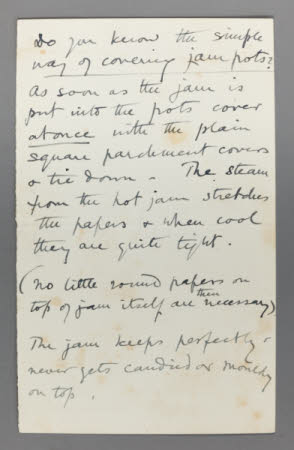 Do you know the simple
way of covering jam pots?
As soon as the jam is
put into the pots cover
at once with the plain
square parchment covers
& tie down - The steam
from the hot jam stretches
the papers & when cool
they are quite tight.
(No little round papers on
top of jam itself are then necessary)
The jam keeps perfectly &
never gets candied or mouldy
on top.